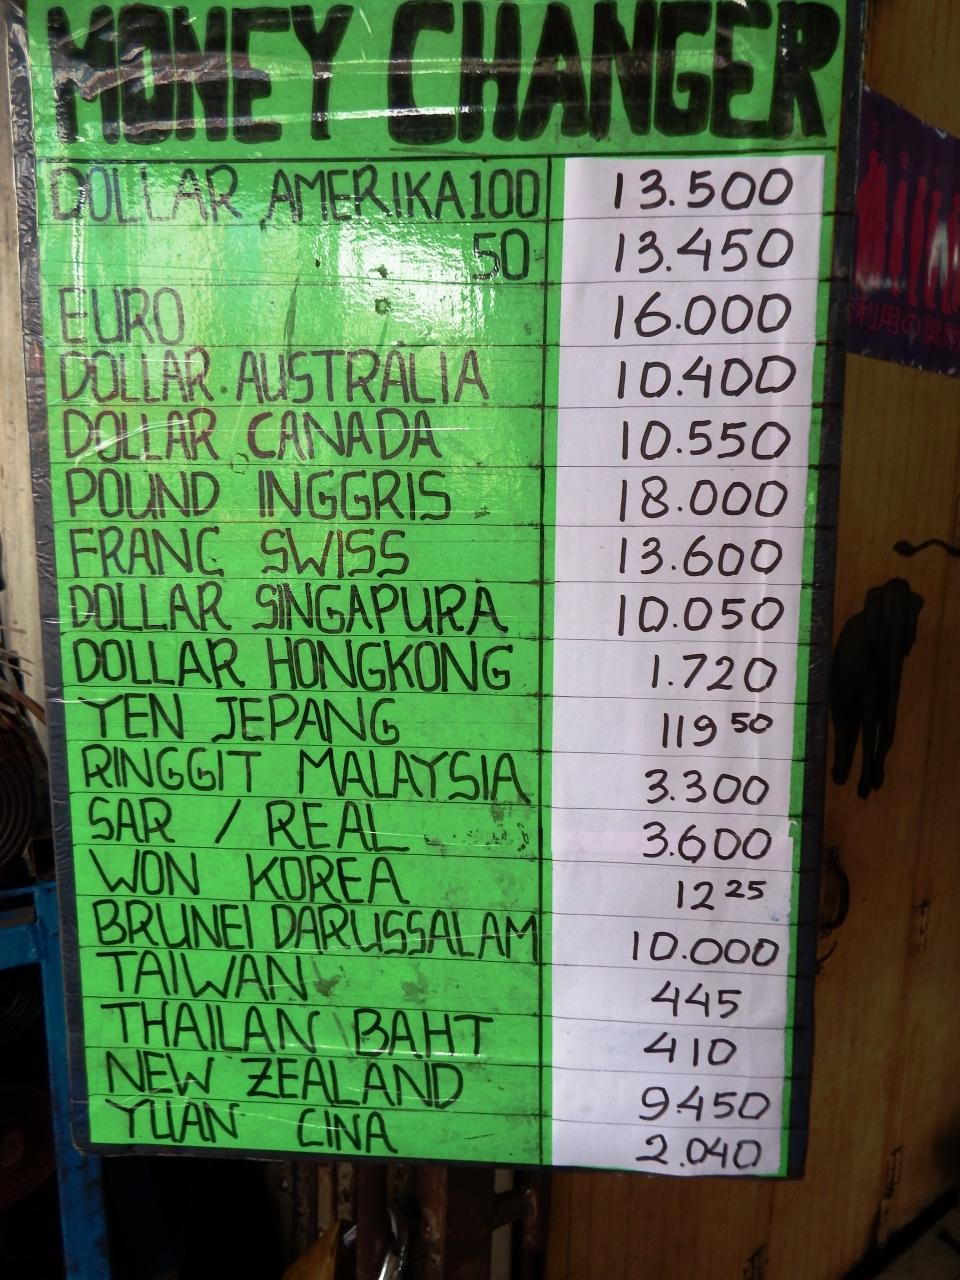 MONEY CHANGER
DOLLAR AMERIKA 100 13.500
50 13.450
EURO 16.000
DOLLAR. AUSTRALIA 10.400
DOLLAR CANADA 10.550
POUND INGGRIS 18.000
FRANC SWISS 13.600
DOLLAR SINGAPURA 10.050
DOLLAR HONGKONG 1.720
YEN JEPANG 119 50
RINGGIT MALAYSIA 3.300
SAR / REAL 3.600
WON KOREA 12 25
BRUNEI DARUSSALAM 10.000
TAIWAN 445
THAILAN BAHT 410
NEW ZEALAND 9.450
YUAN CINA 2.040
利用の